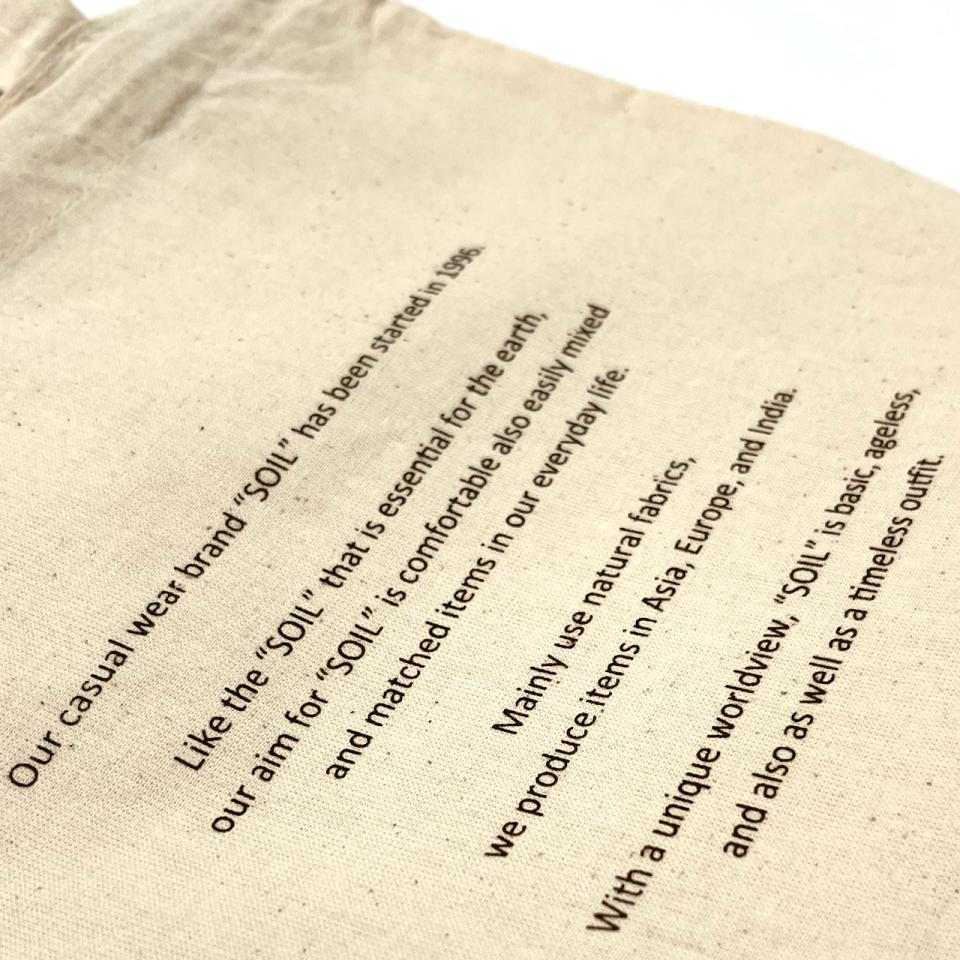 Our casual wear brand “SOIL” has been started in 1996.
Like the “SOIL” that is essential for the earth,
our aim for “SOIL” is comfortable also easily mixed
and matched items in our everyday life.
Mainly use natural fabrics,
we produce items in Asia, Europe, and India.
With a unique worldview, “SOIL” is basic, ageless,
and also as well as a timeless outfit.